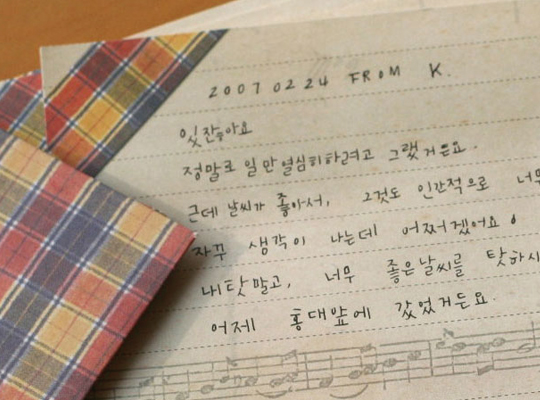 2007 02 24 FROM K.
있잖아요
정말로 일만 열심히 하려고 그랬거든요.
근데 날씨가 좋아서, 그것도 인간적으로 너무
자꾸 생각이 나는데 어쩌겠어요.
내 탓 말고, 너무 좋은 날씨를 탓하시
어제 홍대앞에 갔었거든요.